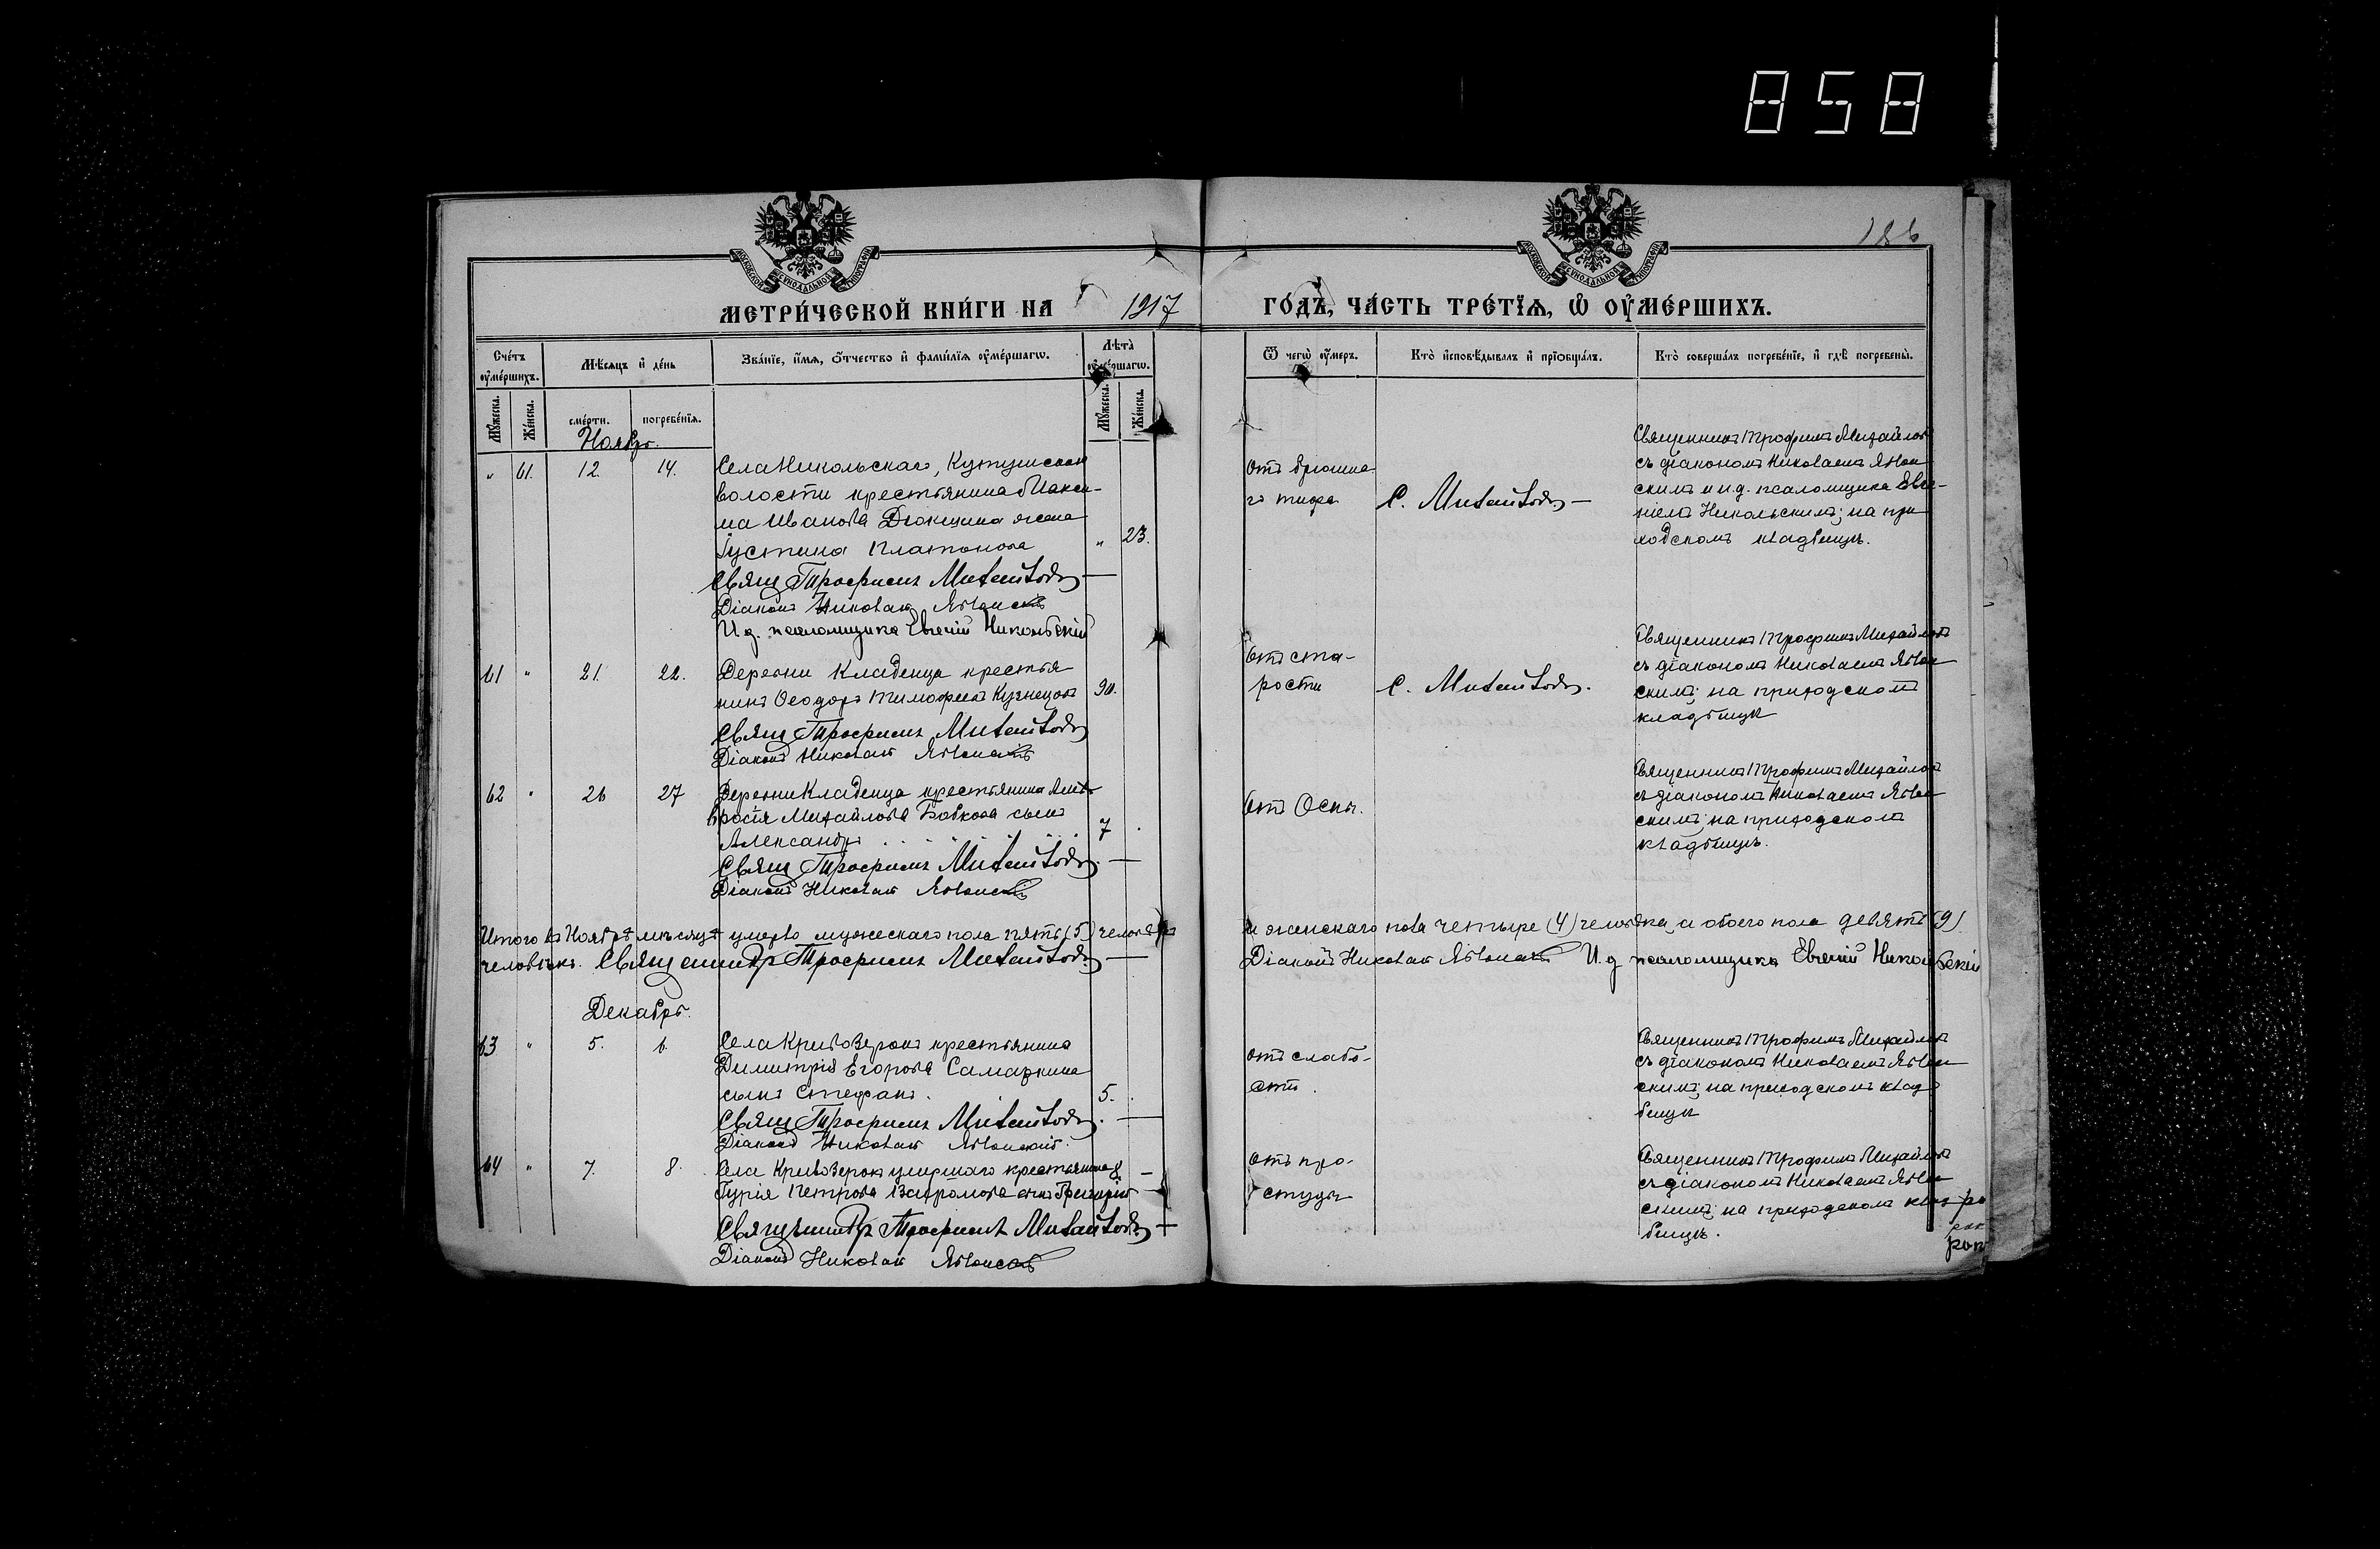 858
186
МЕТРИ́ЧЕСКОЙ КНИ́ГИ НА 1917 ГО́ДЪ, ЧА́СТЬ ТРЕ́ТІЯ, Ѿ ОУ҆МЕ́РШИХЪ.
Сче́тъ оу҆ме́ршихъ.
Мѣ́сяцъ и҆ де́нь
Зва́нїе, и҆́мя, ѻ҆́тчество и҆ фами́лїя оу҆ме́ршагѡ.
Лѣ́та оу҆ме́ршагѡ.
Ѿ чегѡ̀ оу҆́меръ.
Кто̀ и҆сповѣ́дывалъ и҆ прїѻбща́лъ.
Кто̀ соверша́лъ погребе́нїе, и҆ гдѣ̀ погребены̀.
Мꙋ́жеска.
Же́нска.
сме́рти.
погребе́нїя.
Мꙋ́жеска.
Же́нска.
Ноябрь.
" 61. 12. 14. Села Никольскаго,
волости крестьянина Макси-
ма Иванова Дюкщина жена
Іустина Платонова " 23.
Свящ Трофимъ Михайловъ
Діаконъ Николай Яблонскій
И. д. псаломщика Евгеній Никольскій
отъ брюшна-
го тифа
С. Михайловъ
Священникъ Трофимъ Михайловъ
съ діакономъ Николаемъ Яблон
скимъ и и.д. псаломщика Евге-
ніемъ Никольскимъ; на при
ходскомъ кладбищѣ.
61 " 21. 22. Деревни Кладенца крестья
нинъ Ѳеодоръ Тимофеевъ Кузнецовъ 90.
Свящ Трофимъ Михайловъ
Діаконъ Николай Яблонскій
отъ ста-
рости
С. Михайловъ.
Священникъ Трофимъ Михайловъ
съ діакономъ Николаемъ Яблон
скимъ; на приходскомъ
кладбищѣ
62 " 26 27 Деревни Кладенца крестьянина
Михайлова Бобкова сынъ
Александръ 7
Свящ Трофимъ Михайловъ.
Діаконъ Николай Яблонскій
отъ Оспы.
Священникъ Трофимъ Михайловъ
съ діакономъ Николаемъ Яблон
скимъ; на приходскомъ
кладбищѣ.
Итого въ Ноябрѣ мѣсяцѣ умерло мужескаго пола пять (5) человѣкъ и женскаго пола четыре (4) человѣка, а обоего пола девять (9)
человѣкъ. Священникъ Трофимъ Михайловъ. Діаконъ Николай Яблонскій И. д псаломщика Евгеній Никольскій
Декабрь.
63 " 5. 6. Села Кривозерокъ крестьянина
Димитрія Егорова Самаркина
сынъ Стефанъ. 5.
Свящ Трофимъ Михайловъ.
Діаконъ Николай Яблонскій.
отъ слабо-
сти.
Священникъ Трофимъ Михайловъ
съ діакономъ Николаемъ Яблон
скимъ; на приходскомъ клад
бищѣ
64 " 7. 8. Села Кривозерокъ умершаго крестьянина
Гурія Петрова сынъ Григорій
Священникъ Трофимъ Михайловъ
Діаконъ Николай Яблонскій
отъ про-
студы
Священникъ Трофимъ Михайловъ
съ діакономъ Николаемъ Яблон
скимъ; на приходскомъ клад
бищѣ.